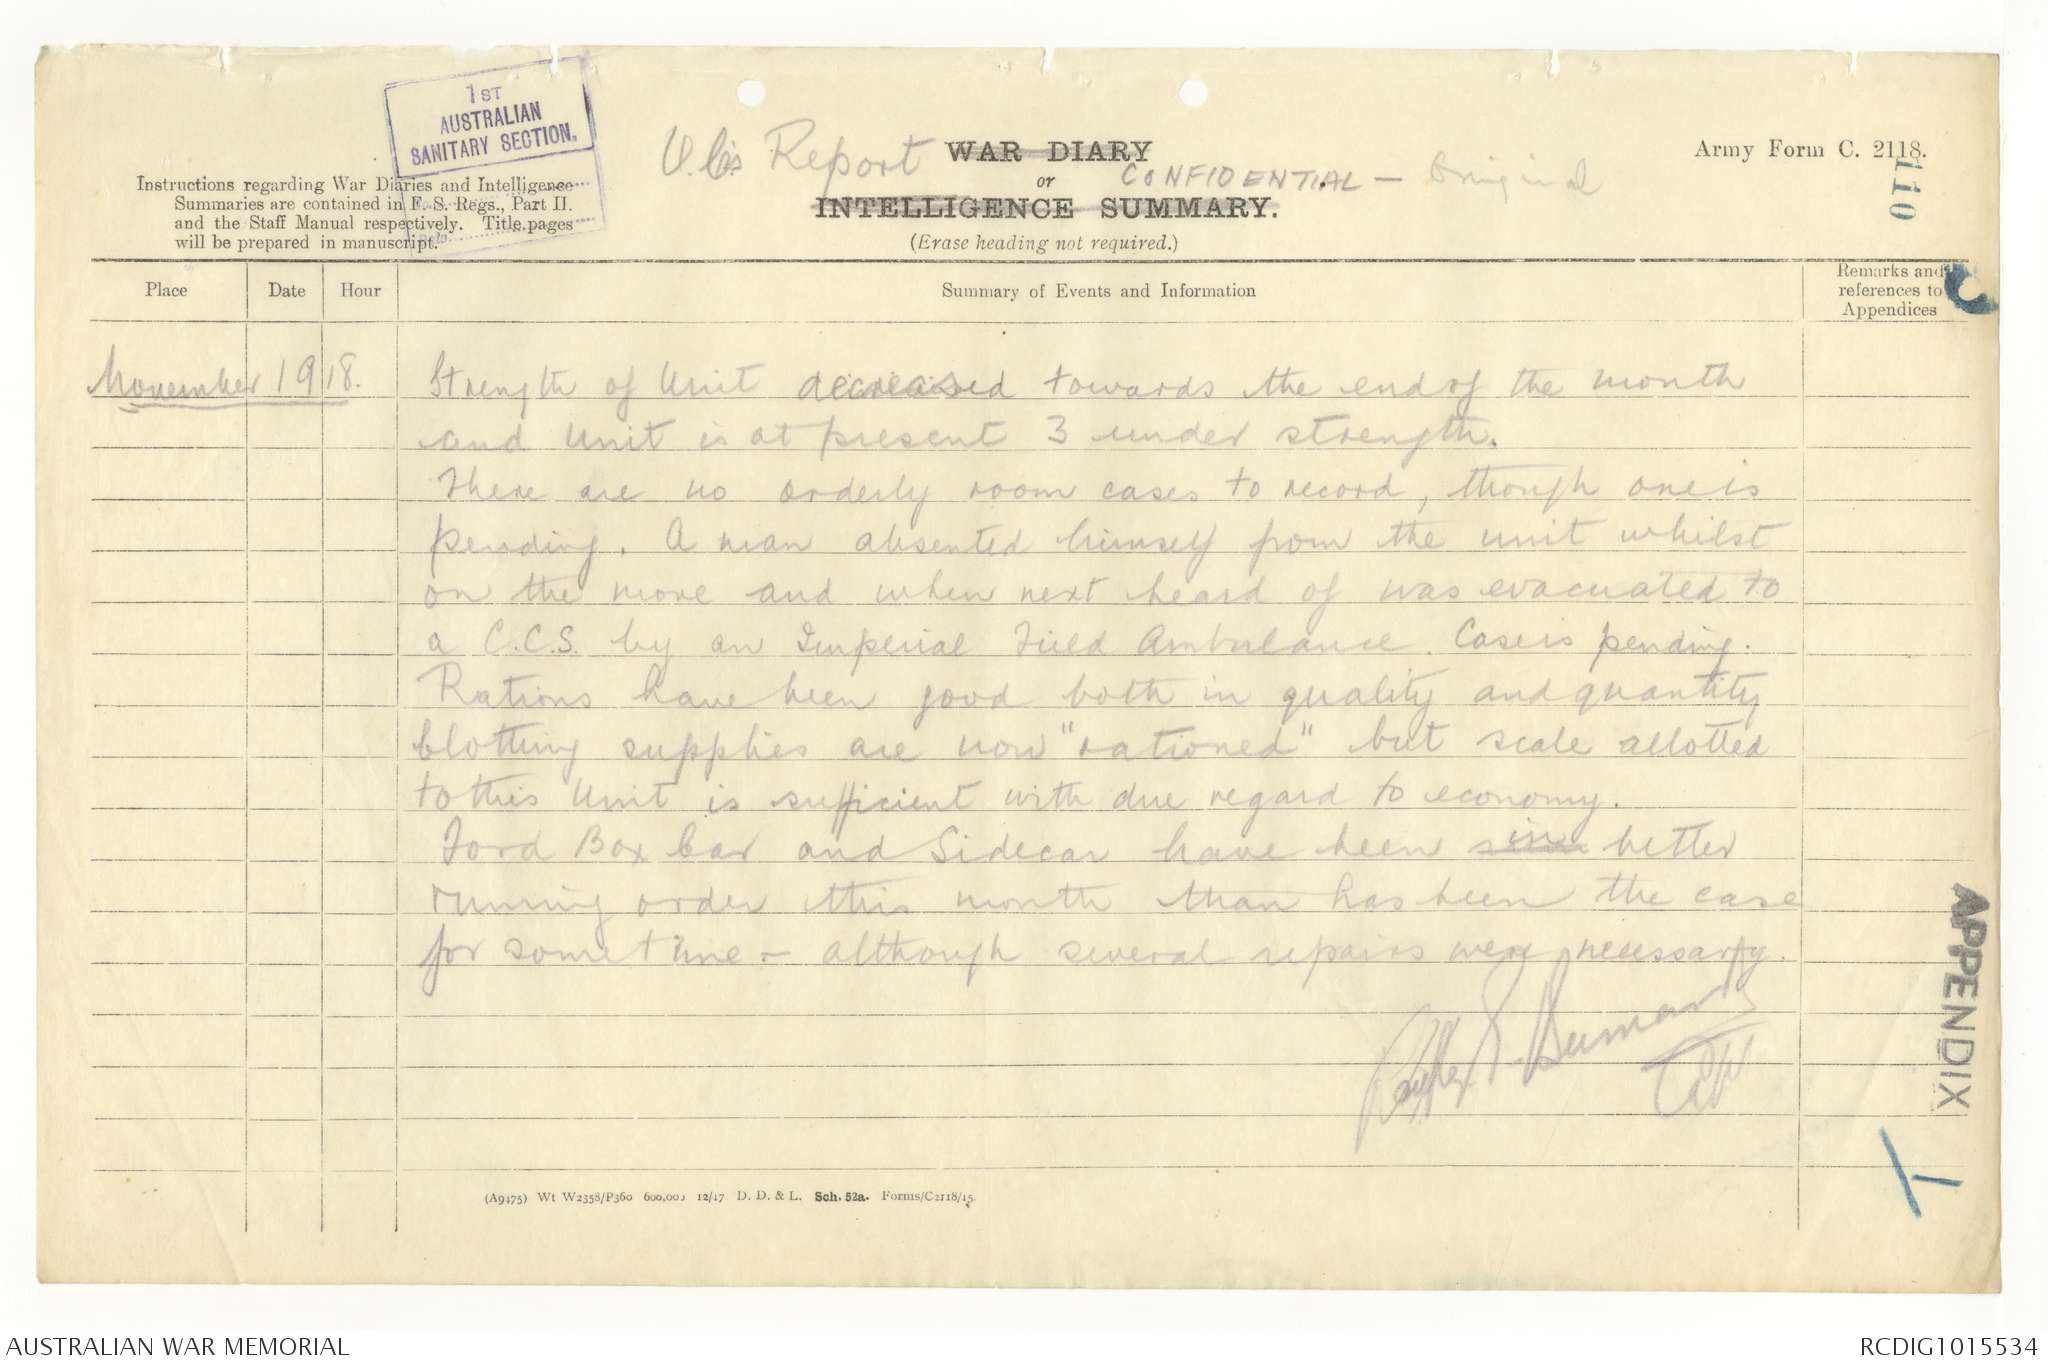 1ST
AUSTRALIAN
SANITARY SECTION.
O.C's Report WAR DIARY
or CONFIDENTIAL - Original
INTELLIGENCE SUMMARY.
(Erase heading not required.)
Army Form C. 2118.
110
Instructions regarding War Diaries and Intelligence
Summaries are contained in F. S. Regs., Part II.
and the Staff Manual respectively. Title pages
will be prepared in manuscript.
Place Date Hour Summary of Events and Information Remarks and
references to
Appendices
November 1918. Strength of Unit decreased towards the end of the month
and Unit is at present 3 under strength.
There are no orderly room cases to record, though one is
pending. A man absented himself from the unit whilst
on the move and when next heard of was evacuated to
a C.C.S. by an Imperial Field Ambulance. Case is pending.
Rations have been good both in quality and quantity
Clothing supplies are now "rationed" but scale allotted
to this Unit is sufficient with due regard to economy.
Ford Box Car and Sidecar have been in better
running order this month than has been the case
for sometime - although several repairs were necessary.
APPENDIX
1
(A9475) Wt W2358/P360 600,000 12/17 D. D. & L. Sch. 52a. Forms/C2118/15.
AUSTRALIAN WAR MEMORIAL
RCDIG1015534